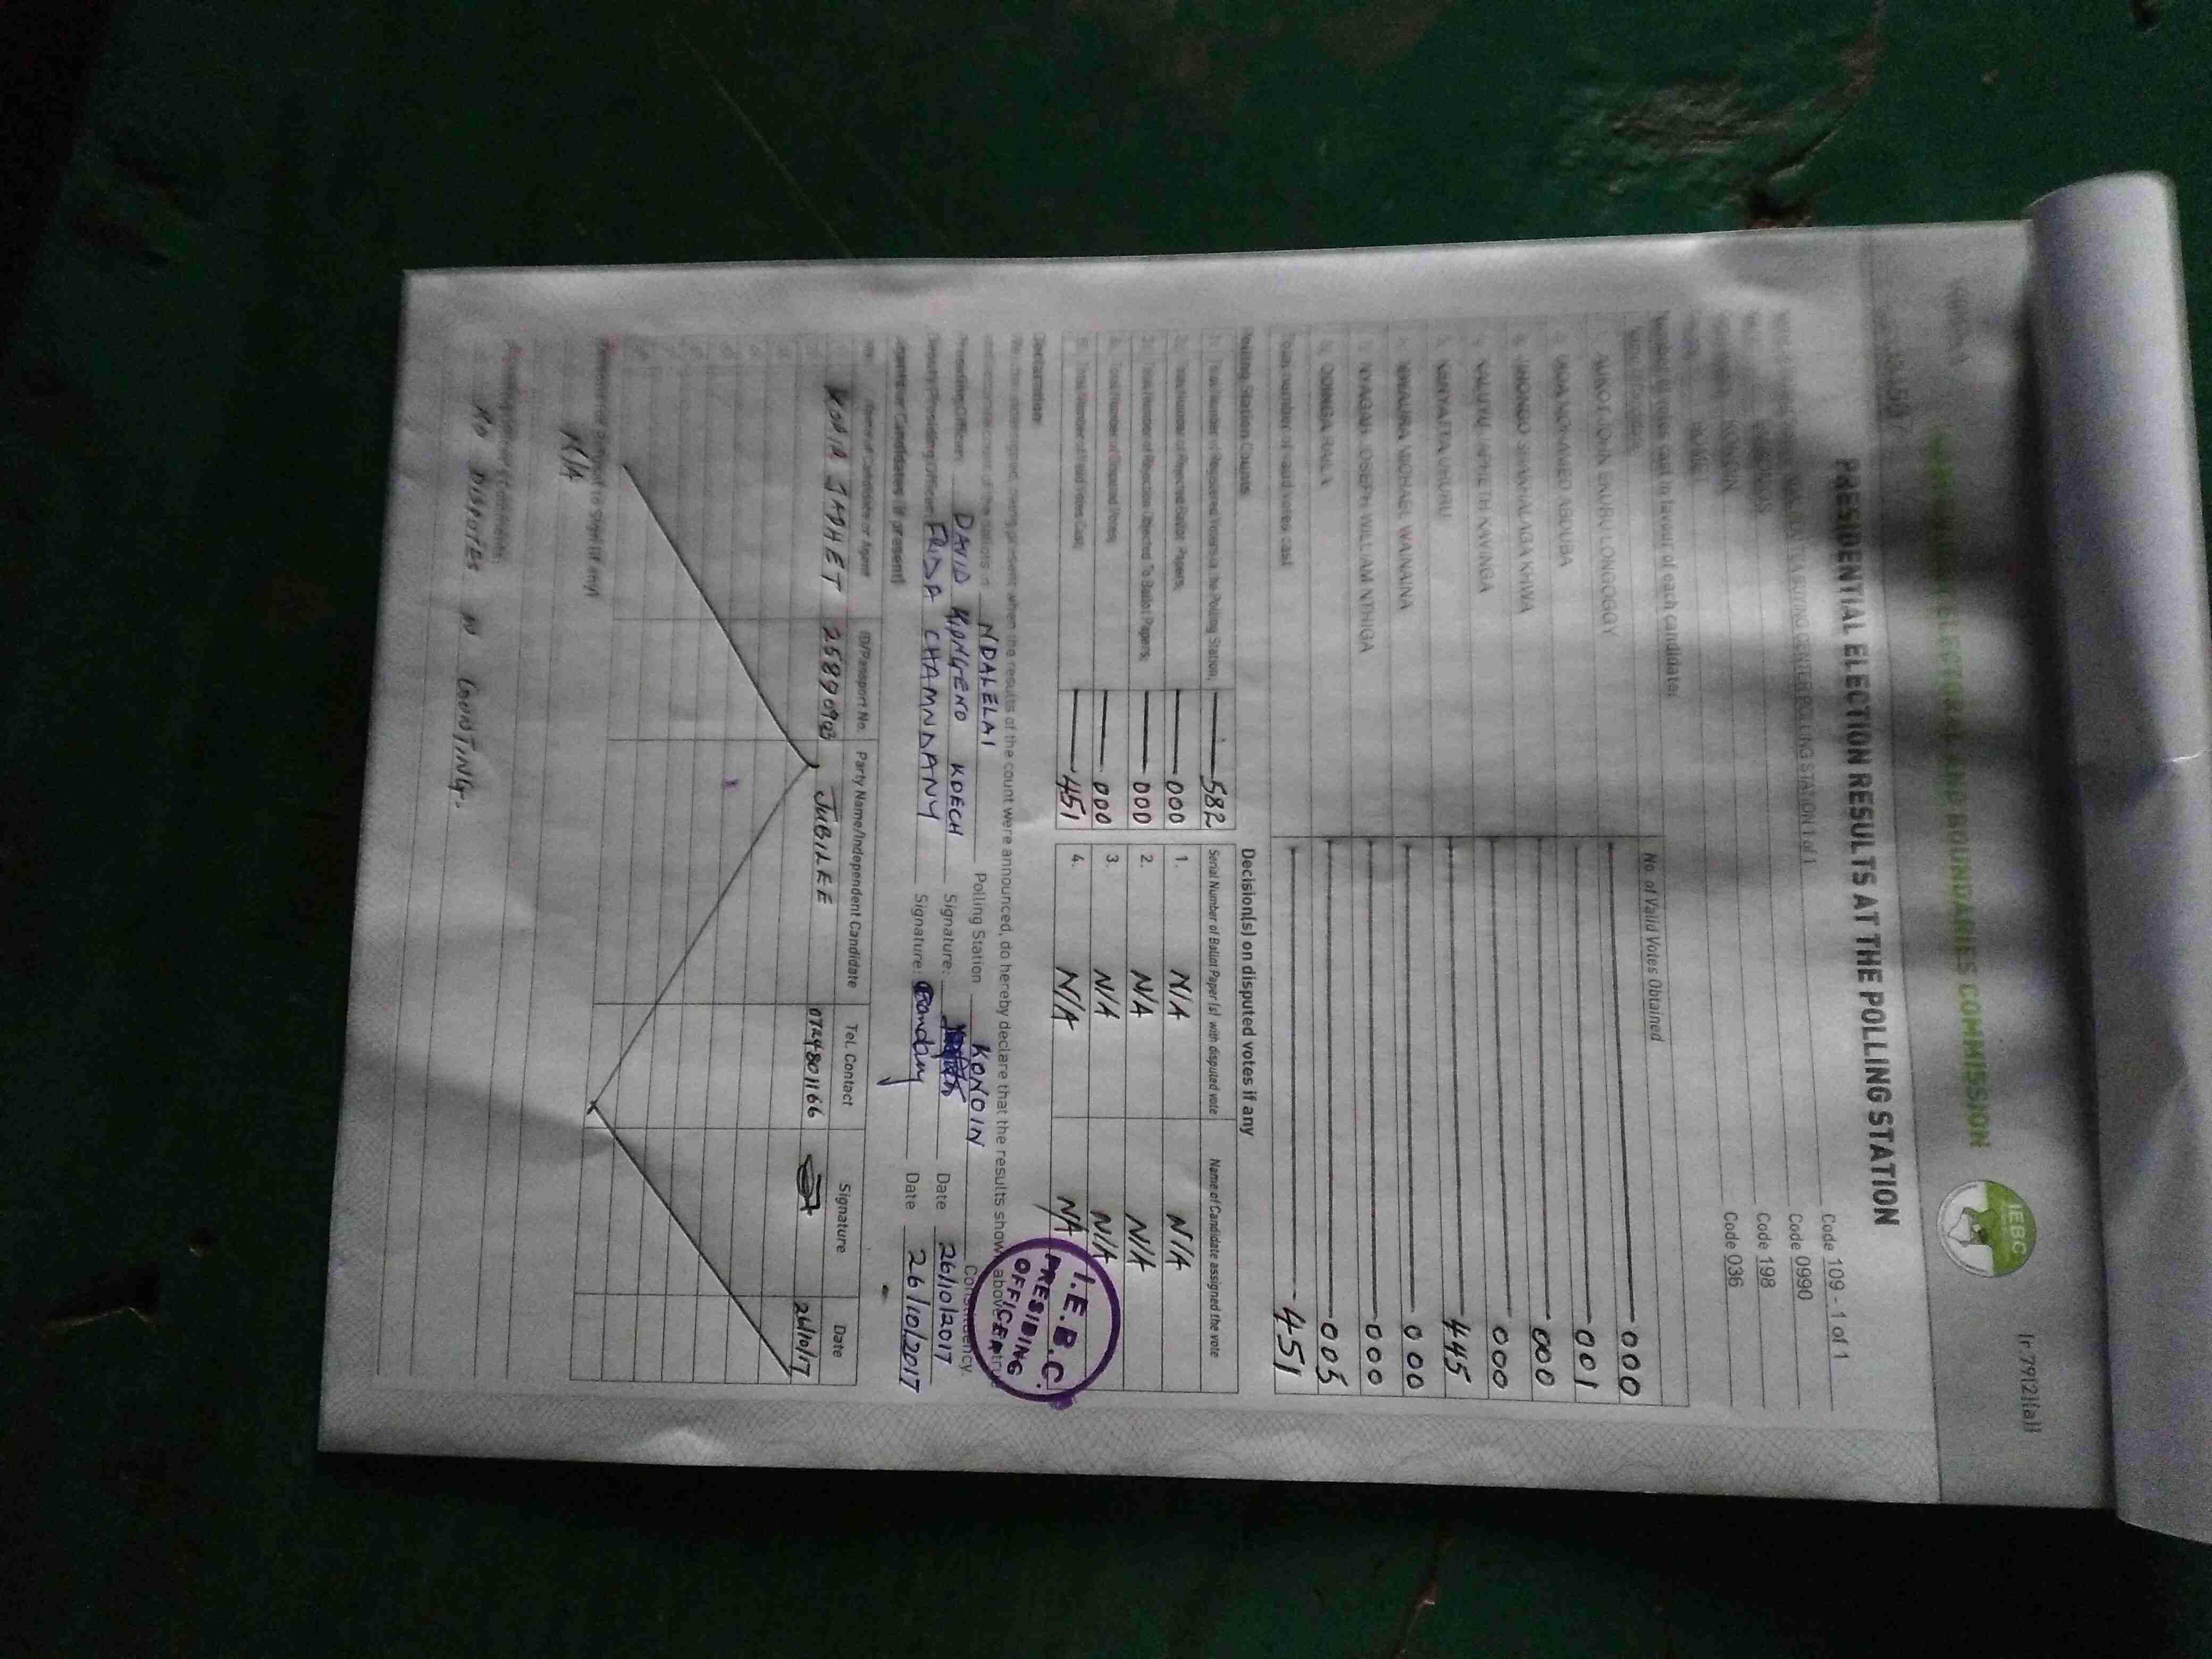 ELECTORAL AND BOUNDARIES COMMISSION
IEBC
(r 79(2)(a))
PRESIDENTIAL ELECTION RESULTS AT THE POLLING STATION
BUYING CENTER POLLING STATION 1 of 1 Code 109 - 1 of 1
Code 0990
KONOIN Code 198
BOMET Code 036
Number of votes cast in favour of each candidate:
No. of Valid Votes Obtained
JOHN EKURU LONGOGGY 000
MOHAMED ABDUBA 001
SHAKHALAGA KHWA 000
KALUYU JAPHETH KAVINGA 000
KENYATTA UHURU 445
MWAURA MICHAEL WAINAINA 000
NYAGAH JOSEPH WILLIAM NTHIGA 000
ODINGA RAILA 005
Total number of valid votes cast 451
Polling Station Counts
1. Total Number of Registered Voters in the Polling Station; 582
2. Total Number of Rejected Ballot Papers; 000
3. Total Number of Rejection Objected To Ballot Papers; 000
4. Total Number of Disputed Votes; 000
5. Total Number of Valid Votes Cast; 451
Decision(s) on disputed votes if any
Serial Number of Ballot Paper (s) with disputed vote Name of Candidate assigned the vote
1. N/A N/A
2. N/A N/A
3. N/A N/A
4. N/A N/A
Declaration
We, the undersigned, being present when the results of the count were announced, do hereby declare that the results shown above
NDALELAI Polling Station KONOIN Constituency.
Presiding Officer: DAVID KIPNGENO KOECH Signature: Date 26/10/2017
Deputy Presiding Officer: FRIDA CHAMNDANY Signature: Date 26/10/2017
I.E.B.C.
PRESIDING
OFFICER
Agents or Candidates (if present)
Name of Candidate or Agent ID/Passport No. Party Name/Independent Candidate Tel. Contact Signature Date
JAPHET 25890903 JUBILEE 0724801166 26/10/17
Reasons for Refusal to Sign (if any)
N/A
Comments:
NO DISPUTES IN COUNTING.